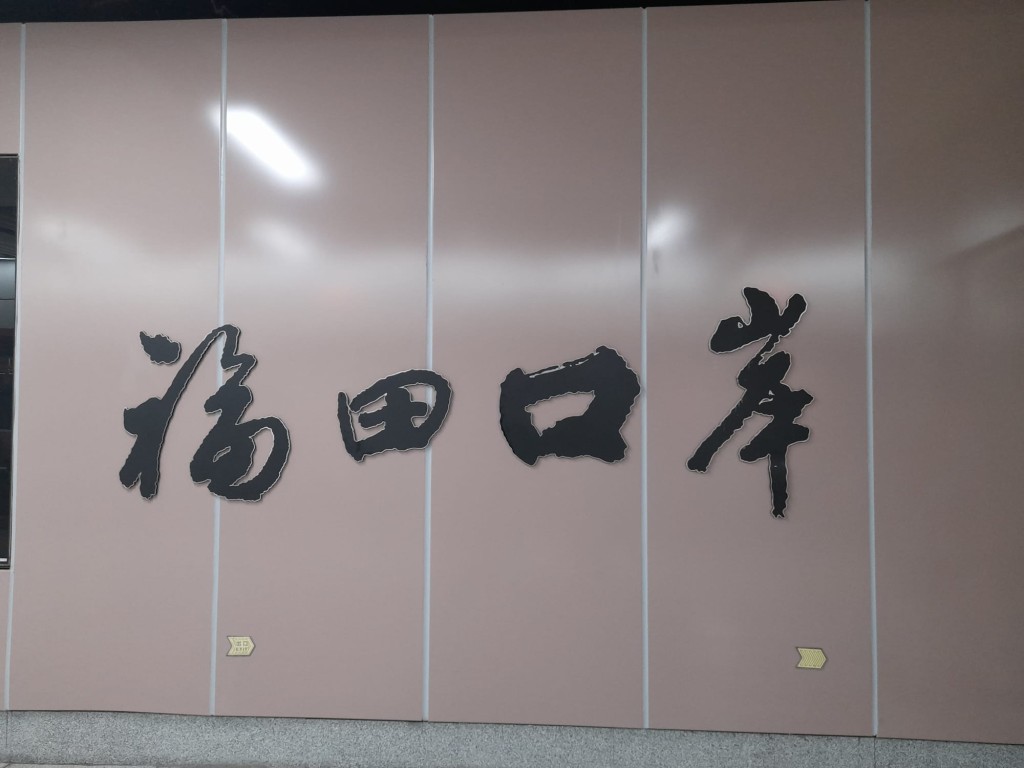 福田口岸
出口
EXIT